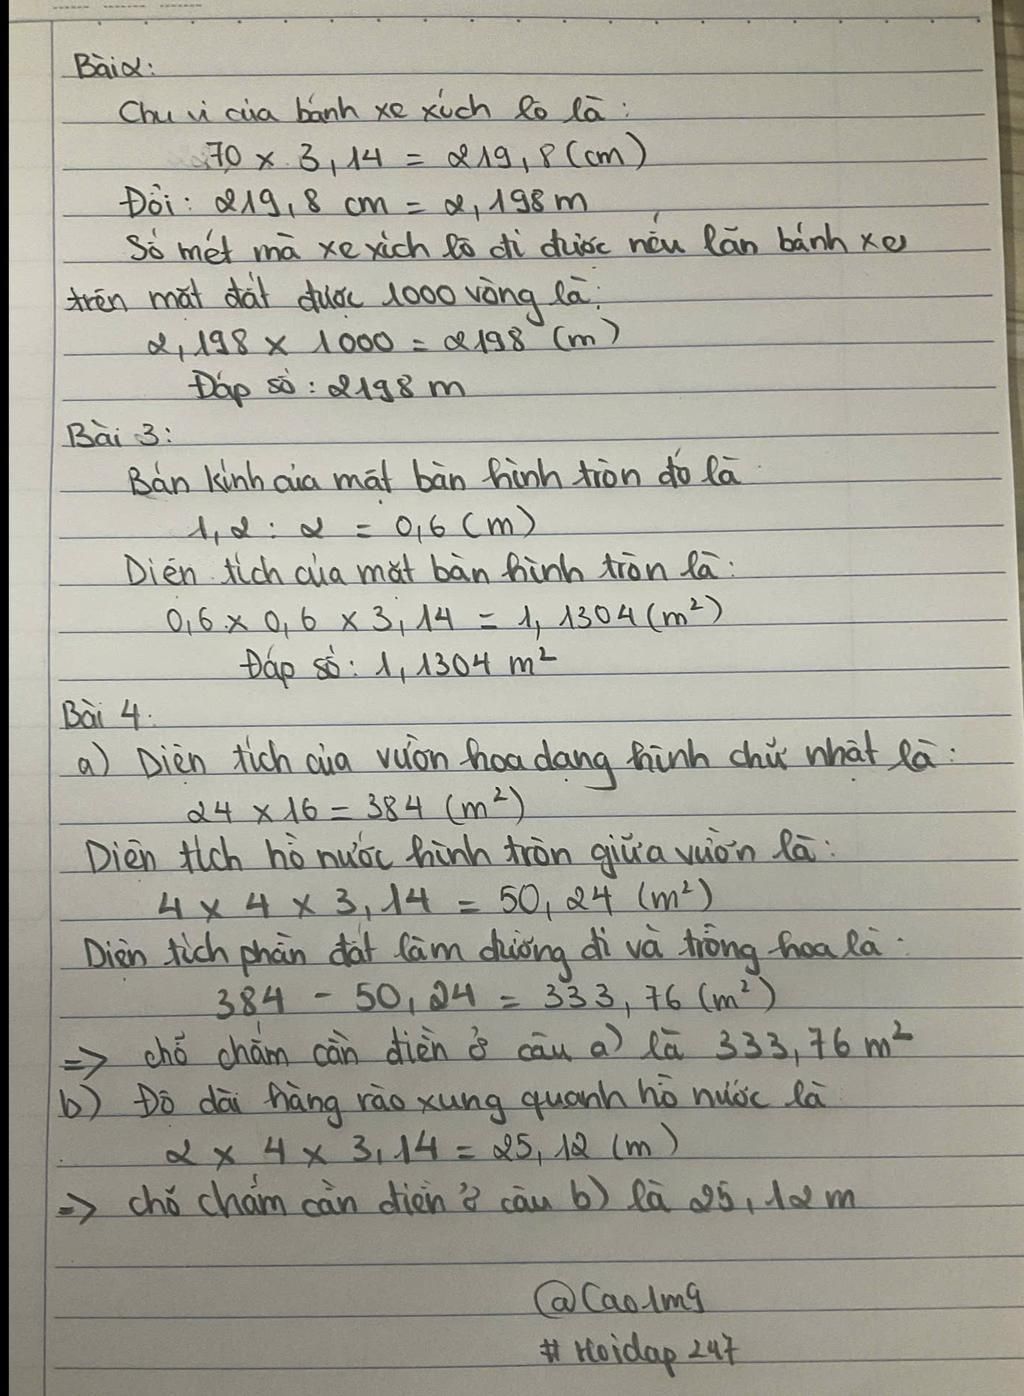 Bài 2:
Chu vi của bánh xe xích lô là:
70 x 3,14 = 219,8 (cm)
Đổi: 219,8 cm = 2,198 m
Số mét mà xe xích lô đi được nếu lăn bánh xe
trên mặt đất được 1000 vòng là:
2,198 x 1000 = 2198 (m)
Đáp số: 2198 m
Bài 3:
Bán kính của mặt bàn hình tròn đó là
1,2 : 2 = 0,6 (m)
Diện tích của mặt bàn hình tròn là:
0,6 x 0,6 x 3,14 = 1,1304 (m²)
Đáp số: 1,1304 m²
Bài 4:
a) Diện tích của vườn hoa dạng hình chữ nhật là:
24 x 16 = 384 (m²)
Diện tích hồ nước hình tròn giữa vườn là:
4 x 4 x 3,14 = 50,24 (m²)
Diện tích phần đất làm đường đi và trồng hoa là:
384 - 50,24 = 333,76 (m²)
=> chỗ chấm cần điền ở câu a) là 333,76 m²
b) Độ dài hàng rào xung quanh hồ nước là
2 x 4 x 3,14 = 25,12 (m)
=> chỗ chấm cần điền ở câu b) là 25,12 m
@Cao1mg
# Hoidap 247